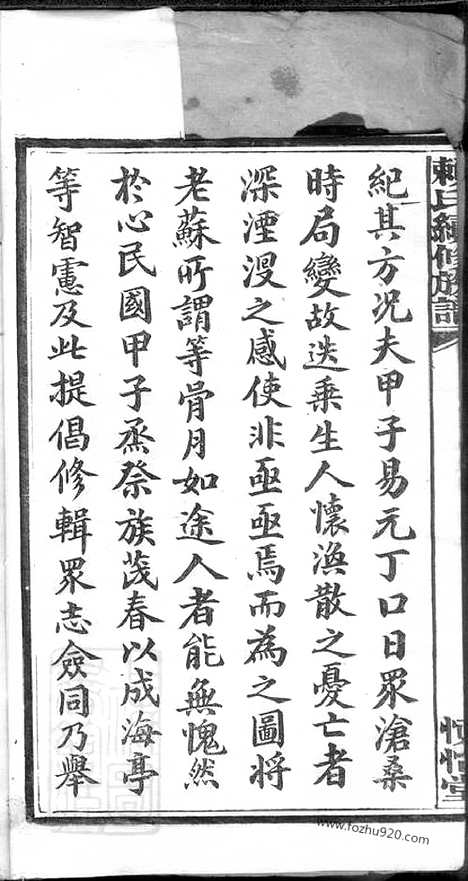 紀其方况夫甲子易元丁口日眾滄桑
時局變故迭乘生人懷渙散之憂亡者
深湮沒之感使非亟亟焉而為之圖將
老蘇所謂等骨月如途人者能無愧然
於心民國甲子烝祭族茂春以成海亭
等智慮及此提倡修輯眾志僉同乃舉
賴氏續修族譜
惇怡堂
www.fozhu920.com